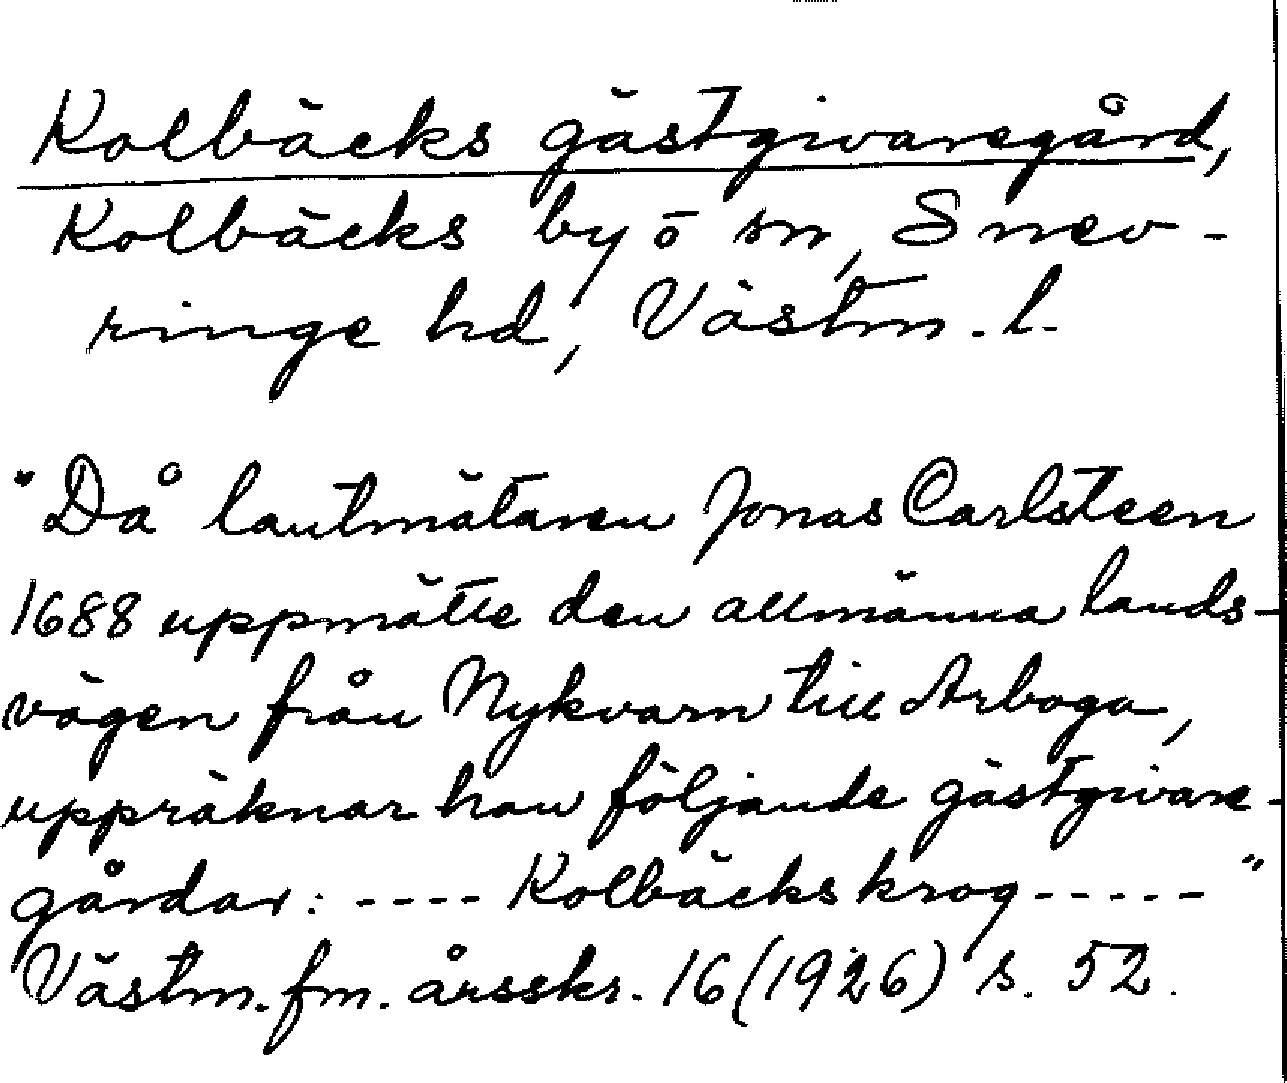 Kolbäcks gästgivaregård,
Kolbäcks by o sn, Snev-
ringe hd, Västm. l.
"Då lantmätaren Jonas Carlsteen
1688 uppmätte den allmänna lands-
vägen från Nykvarn till Arboga,
uppräknar han följande gästgivare-
gårdar: ---- Kolbäcks krog ----- "
Västm. fm. årsskr. 16 (1926) s. 52.